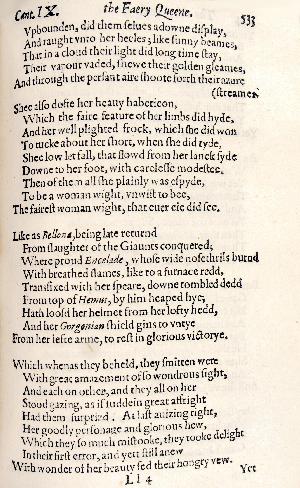 Cant. IX. the Faery Queene. 533
Vpbounden, did them selues adowne display,
And raught vnto her heeles; like sunny beames,
That in a cloud their light did long time stay,
Their vapour vaded, shewe their golden gleames,
And through the persant aire shoote forth their azure
(streames.
Shee also dofte her heauy habericon,
Which the faire feature of her limbs did hyde,
And her well plighted frock, which she did won
To tucke about her short, when she did ryde,
Shee low let fall, that flowd from her lanck syde
Downe to her foot, with carelesse modestee.
Then of them all she plainly was espyde,
To be a woman wight, vnwist to bee,
The fairest woman wight, that euer eie did see.
Like as Bellona, being late returnd
From slaughter of the Giaunts conquered;
Where proud Encelade, whose wide nosethrils burnd
With breathed flames, like to a furnace redd,
Transfixed with her speare, downe tombled dedd
From top of Hemus, by him heaped hye;
Hath loosd her helmet from her lofty hedd,
And her Gorgonian shield gins to vntye
From her lefte arme, to rest in glorious victorye.
Which whenas they beheld, they smitten were
With great amazement of so wondrous sight,
And each on other, and they all on her
Stood gazing, as if suddein great affright
Had them surprizd. At last auizing right,
Her goodly personage and glorious hew,
Which they so much mistooke, they tooke delight
In their first error, and yett still anew
With wonder of her beauty fed their hongry vew.
Ll 4 Yet